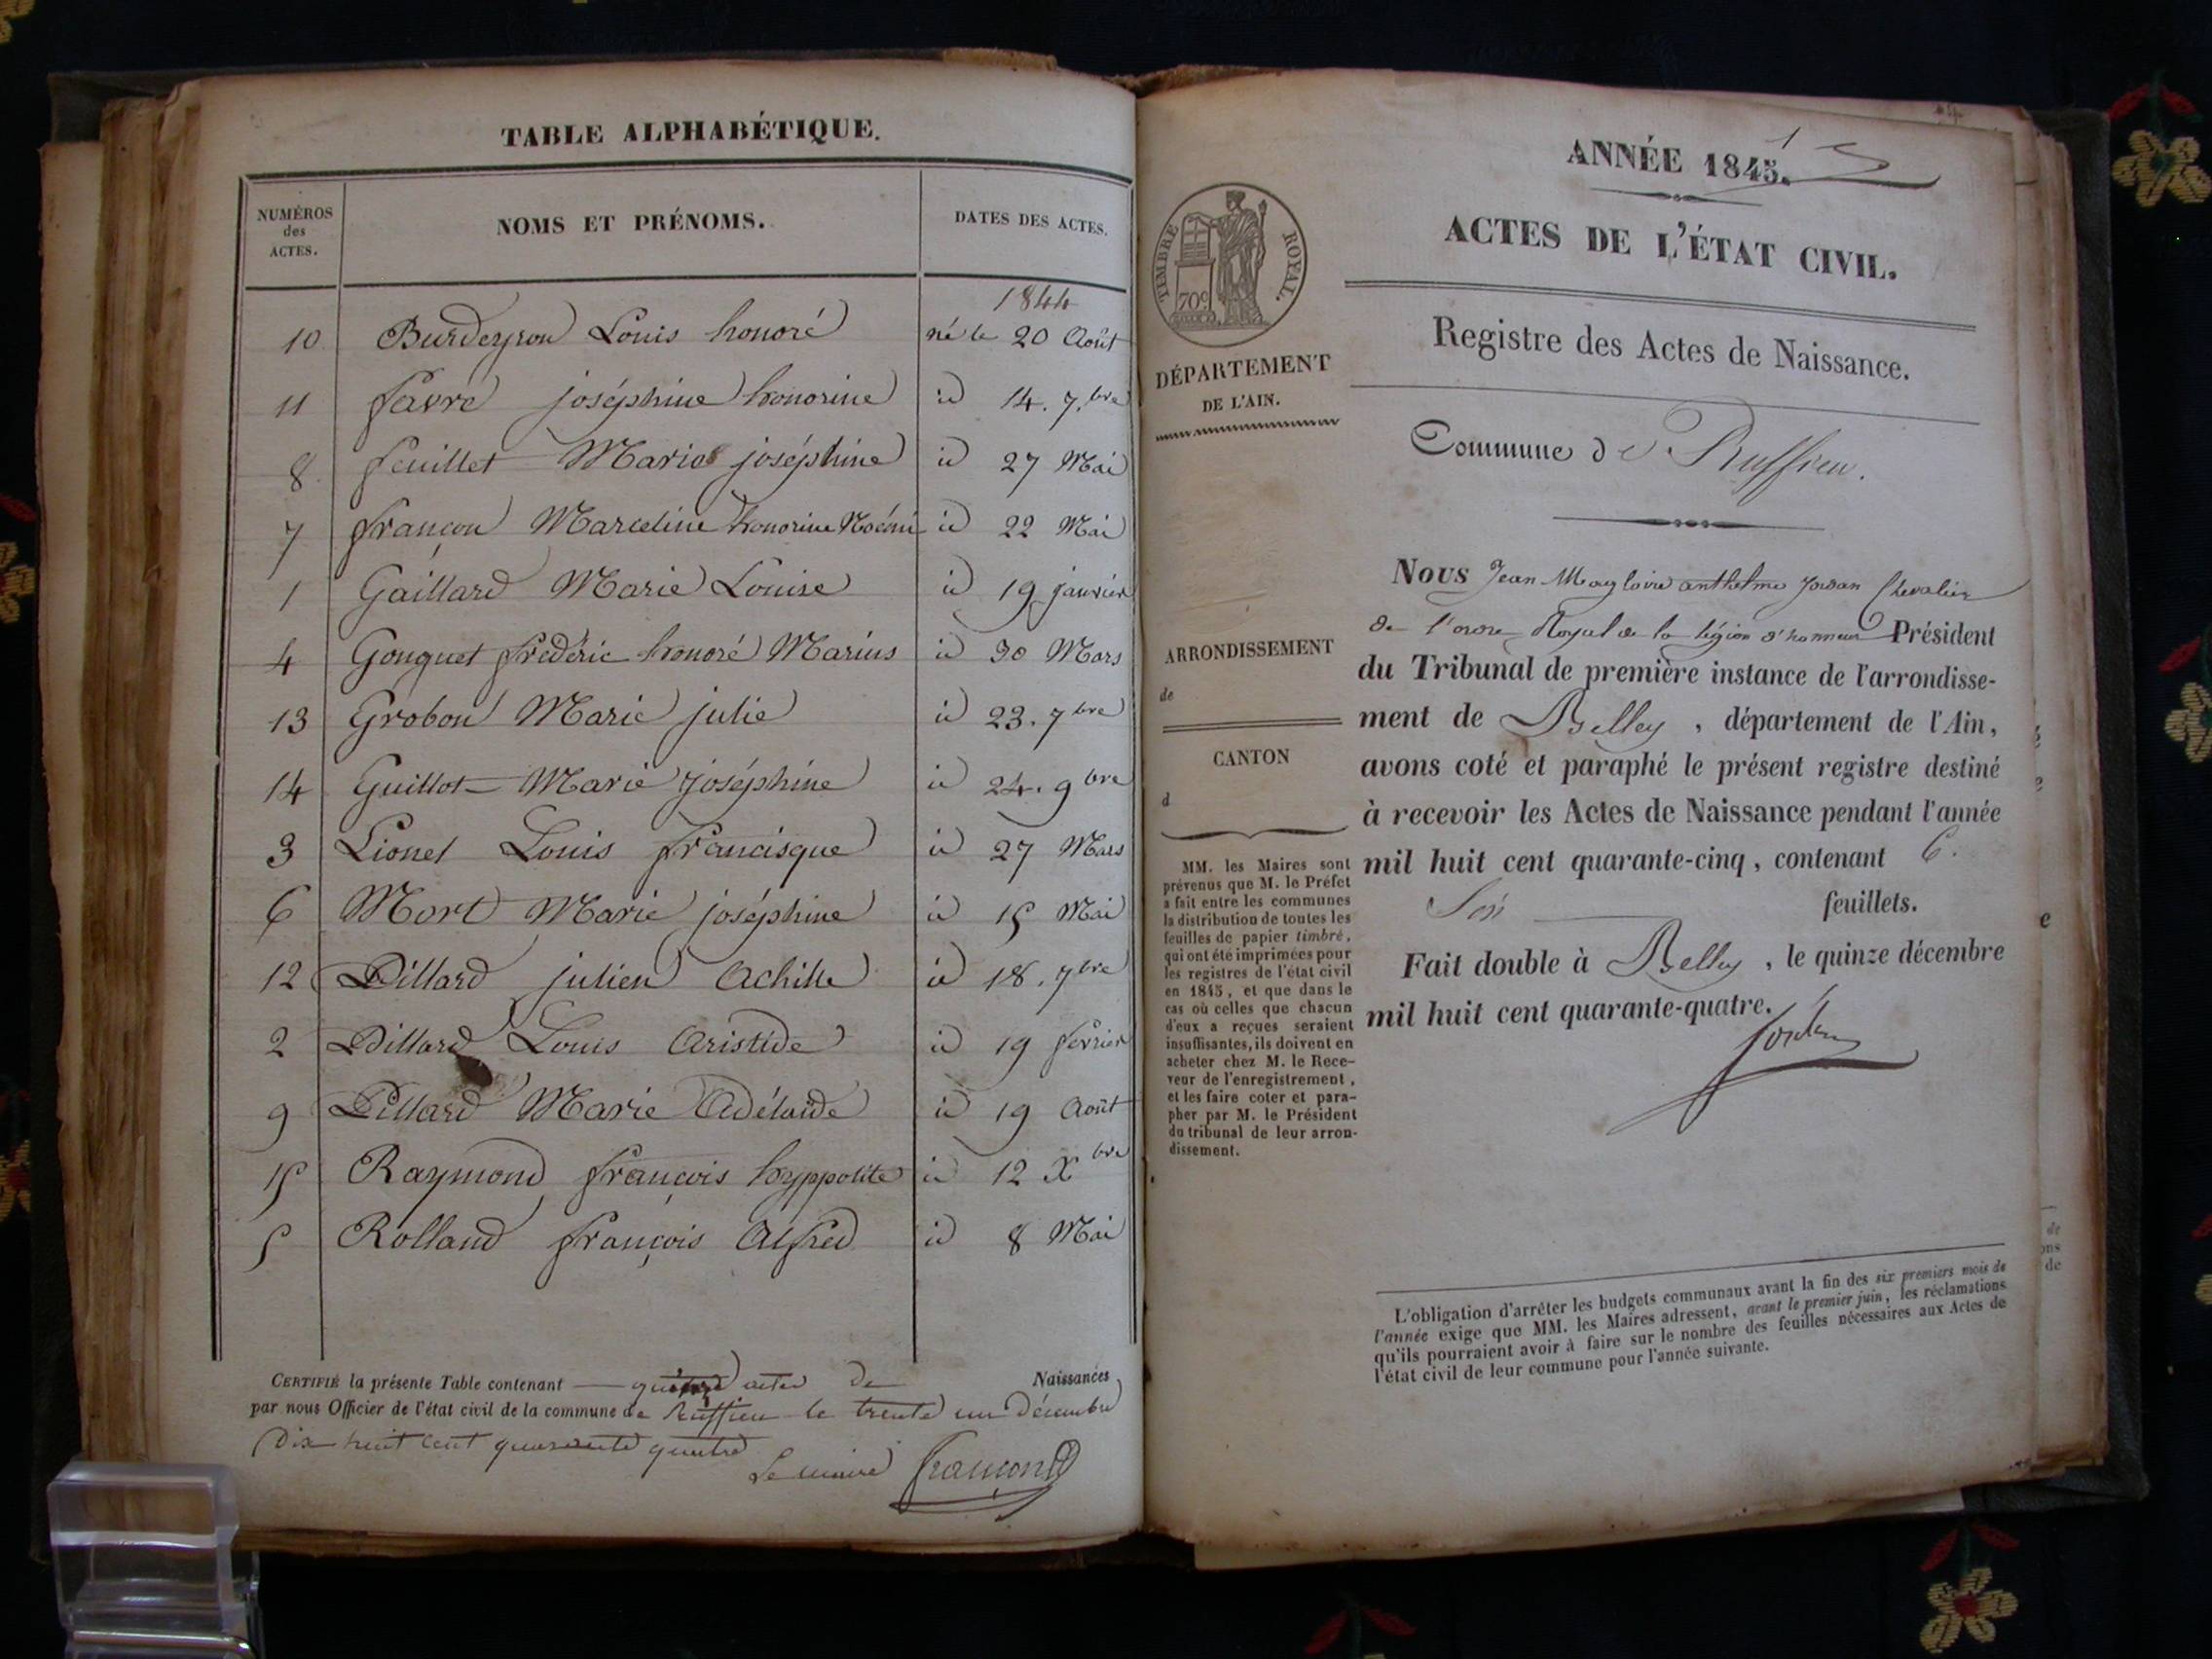 TABLE ALPHABÉTIQUE.
NUMÉROS des ACTES. NOMS ET PRÉNOMS. DATES DES ACTES.
1844
10 Burdeyron Louis honoré né le 20 Août
11 favre joséphine honorine id 14. 7.bre
8 feuillet Marie joséphine id 27 Mai
7 françon Marceline honorine Noémi id 22 Mai
1 Gaillard Marie Louise id 19 janvier
4 Gonguet frédéric honoré Marius id 30 Mars
13 Grobon Marie julie id 23. 7bre
14 Guillot Marie joséphine id 24. 9bre
3 Lionet Louis francisque id 27 Mars
6 Mort Marie joséphine id 15 Mai
12 Pillard julien Achille id 18. 7bre
2 Pillard Louis Aristide id 19 février
9 Pillard Marie Adélaïde id 19 Août
15 Raymond françois hyppolite id 12 Xbre
5 Rolland françois Alfred id 8 Mai
CERTIFIÉ la présente Table contenant actes de Naissances
par nous Officier de l'état civil de la commune de Ruffieu le trente un Décembre
Dix huit cent quarante quatre
Le maire françon
ANNÉE 1845.
1
ACTES DE L'ÉTAT CIVIL.
TIMBRE ROYAL.
70c
Registre des Actes de Naissance.
DÉPARTEMENT
DE L'AIN.
Commune de Ruffieu.
ARRONDISSEMENT
de
CANTON
d
MM. les Maires sont
prévenus que M. le Préfet
a fait entre les communes
la distribution de toutes les
feuilles de papier timbré,
qui ont été imprimées pour
les registres de l'état civil
en 1845, et que dans le
cas où celles que chacun
d'eux a reçues seraient
insuffisantes, ils doivent en
acheter chez M. le Rece-
veur de l'enregistrement,
et les faire coter et para-
pher par M. le Président
du tribunal de leur arron-
dissement.
Nous Jean Magloire anthelme Jordan Chevalier
de l'ordre Royal de la légion d'honneur Président
du Tribunal de première instance de l'arrondisse-
ment de Belley, département de l'Ain,
avons coté et paraphé le présent registre destiné
à recevoir les Actes de Naissance pendant l'année
mil huit cent quarante-cinq, contenant 6.
Six feuillets.
Fait double à Belley, le quinze décembre
mil huit cent quarante-quatre.
Jordan
L'obligation d'arrêter les budgets communaux avant la fin des six premiers mois de
l'année exige que MM. les Maires adressent, avant le premier juin, les réclamations
qu'ils pourraient avoir à faire sur le nombre des feuilles nécessaires aux Actes de
l'état civil de leur commune pour l'année suivante.